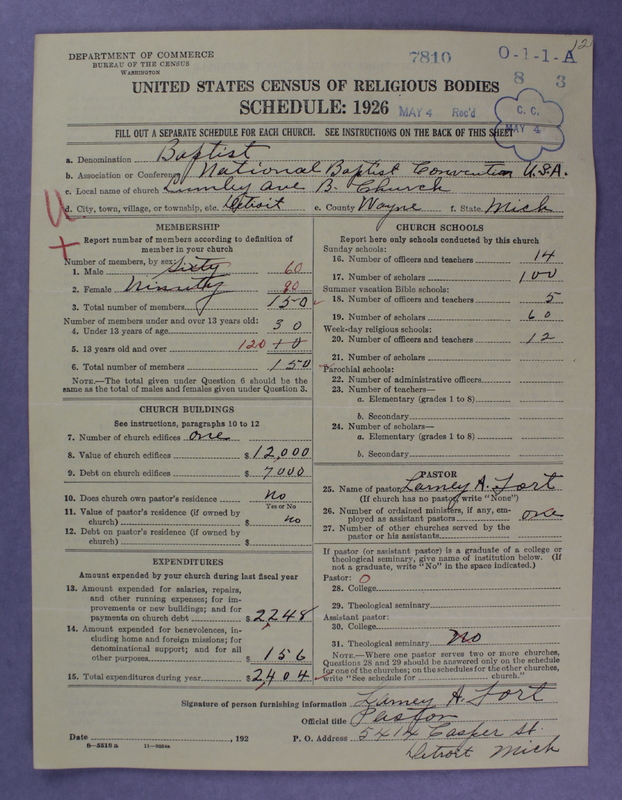 12
DEPARTMENT OF COMMERCE
BUREAU OF THE CENSUS
WASHINGTON
7810
0-1-1-A
8 3
UNITED STATES CENSUS OF RELIGIOUS BODIES
SCHEDULE: 1926
MAY 4 Rec'd
C. C.
MAY 4
FILL OUT A SEPARATE SCHEDULE FOR EACH CHURCH. SEE INSTRUCTIONS ON THE BACK OF THIS SHEET
a. Denomination Baptist
b. Association or Conference National Baptist Convention U.S.A.
c. Local name of church Lumley Ave B. Church
d. City, town, village, or township, etc. Detroit e. County Wayne f. State Mich
MEMBERSHIP
Report number of members according to definition of
member in your church
Number of members by sex:
1. Male Sixty 60
2. Female Ninuty 90
3. Total number of members 150
Number of members under and over 13 years old:
4. Under 13 years of age 30
5. 13 years old and over 120
6. Total number of members 150
NOTE.—The total given under Question 6 should be the
same as the total of males and females given under Question 3.
CHURCH BUILDINGS
See instructions, paragraphs 10 to 12
7. Number of church edifices one
8. Value of church edifices $ 12,000
9. Debt on church edifices $ 7000
10. Does church own pastor's residence No
Yes or No
11. Value of pastor's residence (if owned by
church) $ No
12. Debt on pastor's residence (if owned by
church) $
EXPENDITURES
Amount expended by your church during last fiscal year
13. Amount expended for salaries, repairs,
and other running expenses; for im-
provements or new buildings; and for
payments on church debt $ 2248
14. Amount expended for benevolences, in-
cluding home and foreign missions; for
denominational support; and for all
other purposes $ 156
15. Total expenditures during year $ 2,404
CHURCH SCHOOLS
Report here only schools conducted by this church
Sunday schools:
16. Number of officers and teachers 14
17. Number of scholars 100
Summer vacation Bible schools:
18. Number of officers and teachers 5
19. Number of scholars 60
Week-day religious schools:
20. Number of officers and teachers 12
21. Number of scholars
Parochial schools:
22. Number of administrative officers
23. Number of teachers—
a. Elementary (grades 1 to 8)
b. Secondary
24. Number of scholars—
a. Elementary (grades 1 to 8)
b. Secondary
PASTOR
25. Name of pastor Larney A. Fort
(If church has no pastor, write "None")
26. Number of ordained ministers, if any, em-
ployed as assistant pastors one
27. Number of other churches served by the
pastor or his assistants
If pastor (or assistant pastor) is a graduate of a college or
theological seminary, give name of institution below. (If
not a graduate, write "No" in the space indicated.)
Pastor: 0
28. College
29. Theological seminary
Assistant pastor:
30. College
31. Theological seminary No
NOTE.—Where one pastor serves two or more churches,
Questions 28 and 29 should be answered only on the schedule
for one of the churches; on the schedules for the other churches,
write "See schedule for church."
Signature of person furnishing information Larney A. Fort
Official title Pastor
Date , 192 P. O. Address 5414 Casper St.
Detroit Mich